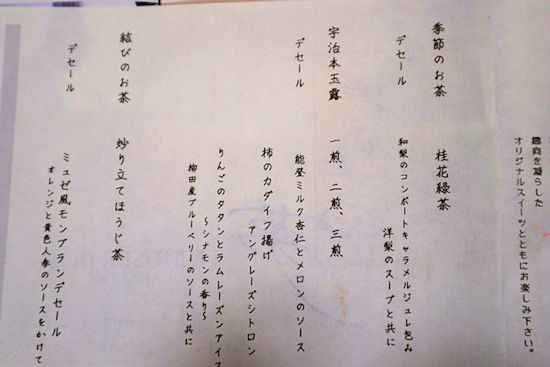 趣向を凝らした
オリジナルスイーツとともにお楽しみ下さい。
季節のお茶 桂花緑茶
デセール 和梨のコンポートキャラメルジュレ包み
洋梨のスープと共に
宇治本玉露 一煎、二煎、三煎
デセール 能登ミルク杏仁とメロンのソース
柿のカダイフ揚げ
アングレーズシトロン
りんごのタタンとラムレーズンアイス
〜シナモンの香り〜
柳田産ブルーベリーのソースと共に
結びのお茶 炒り立てほうじ茶
デセール ミュゼ風モンブランデセール
オレンジと黄色人参のソースをかけて